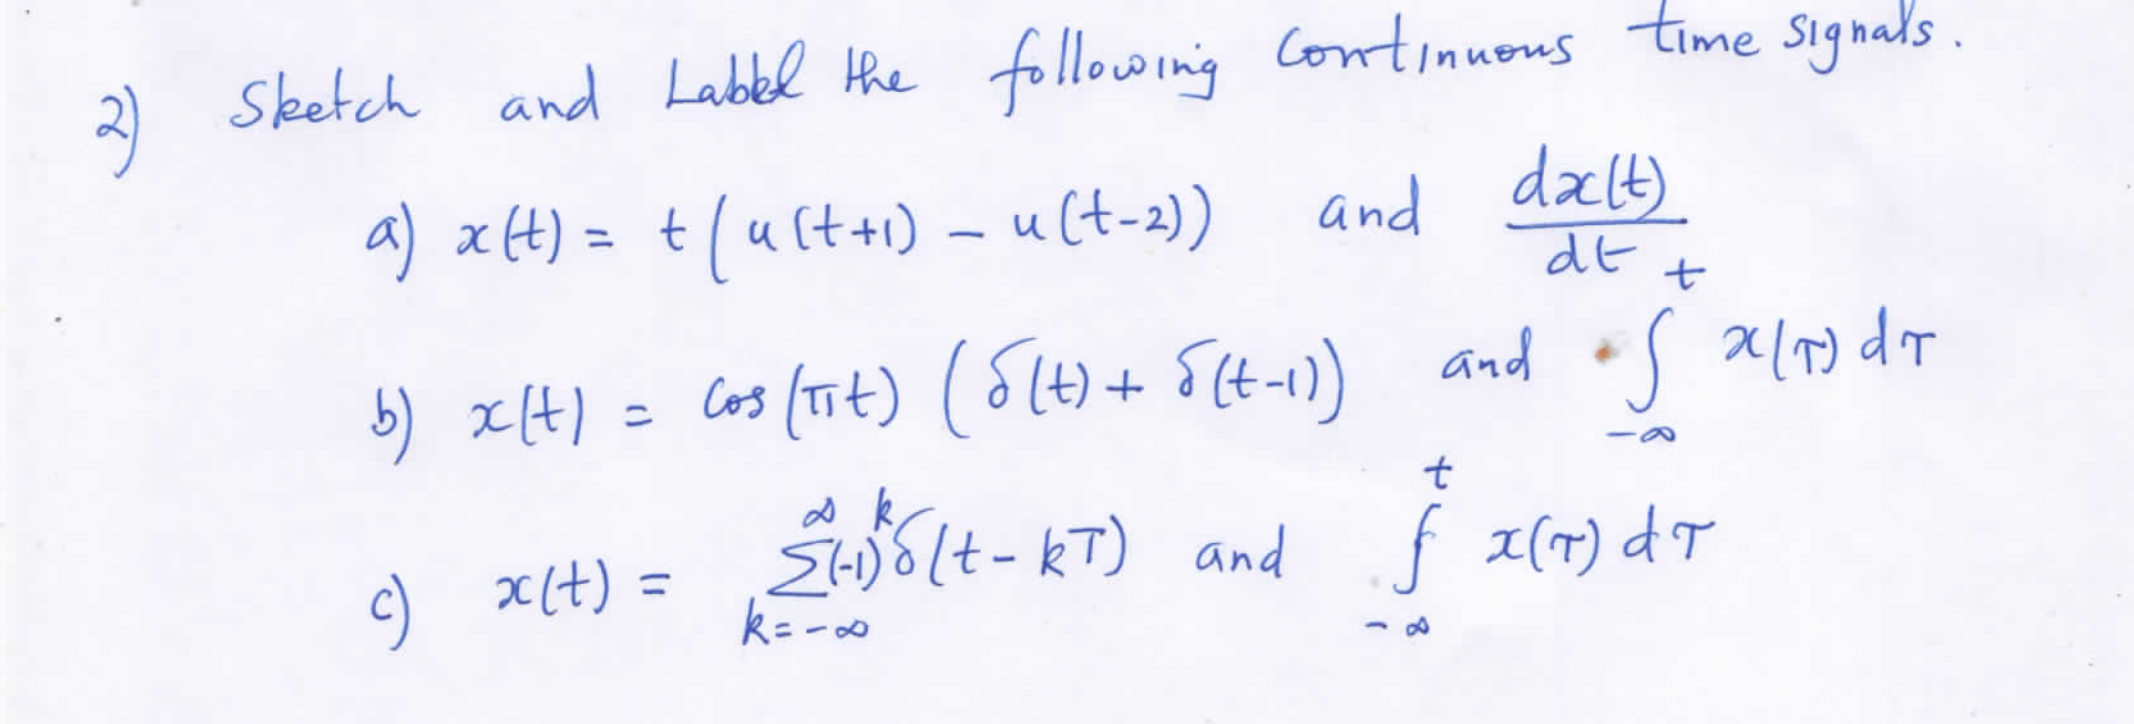 2) Sketch and Labbel the following Continuous time signals.
a) x(t) = t(u(t+1) - u(t-2)) and dx(t)/dt
b) x(t) = Cos(πt) (δ(t) + δ(t-1)) and ∫_{-∞}^{t} x(τ) dτ
c) x(t) = ∑_{k=-∞}^{∞} (-1)^k δ(t - kT) and ∫_{-∞}^{t} x(τ) dτ